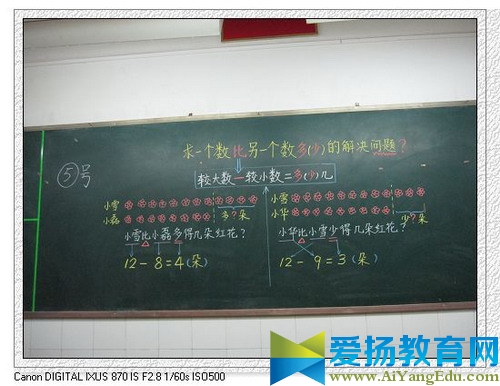 求一个数比另一个数多(少)的解决问题?
⑤号
较大数一较小数=多(少)几
小雪
小磊 多?朵
小雪比小磊多得几朵红花?
12-8=4(朵)
小雪
小华 少?朵
小华比小雪少得几朵红花?
12-9=3(朵)
爱扬教育网
www.AiYangEdu.com
Canon DIGITAL IXUS 870 IS F2.8 1/60s ISO500